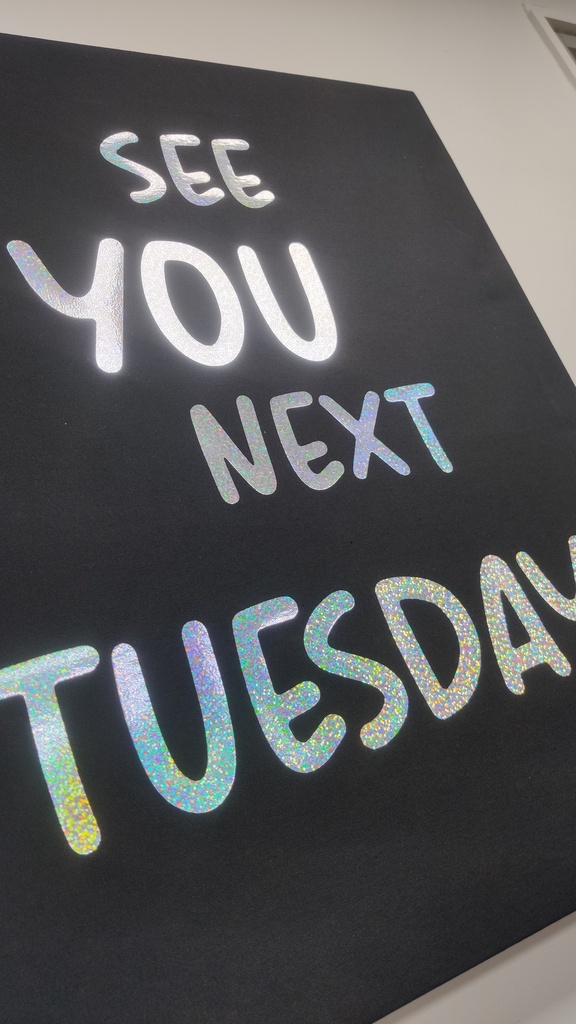 SEE
YOU
NEXT
TUESDAY